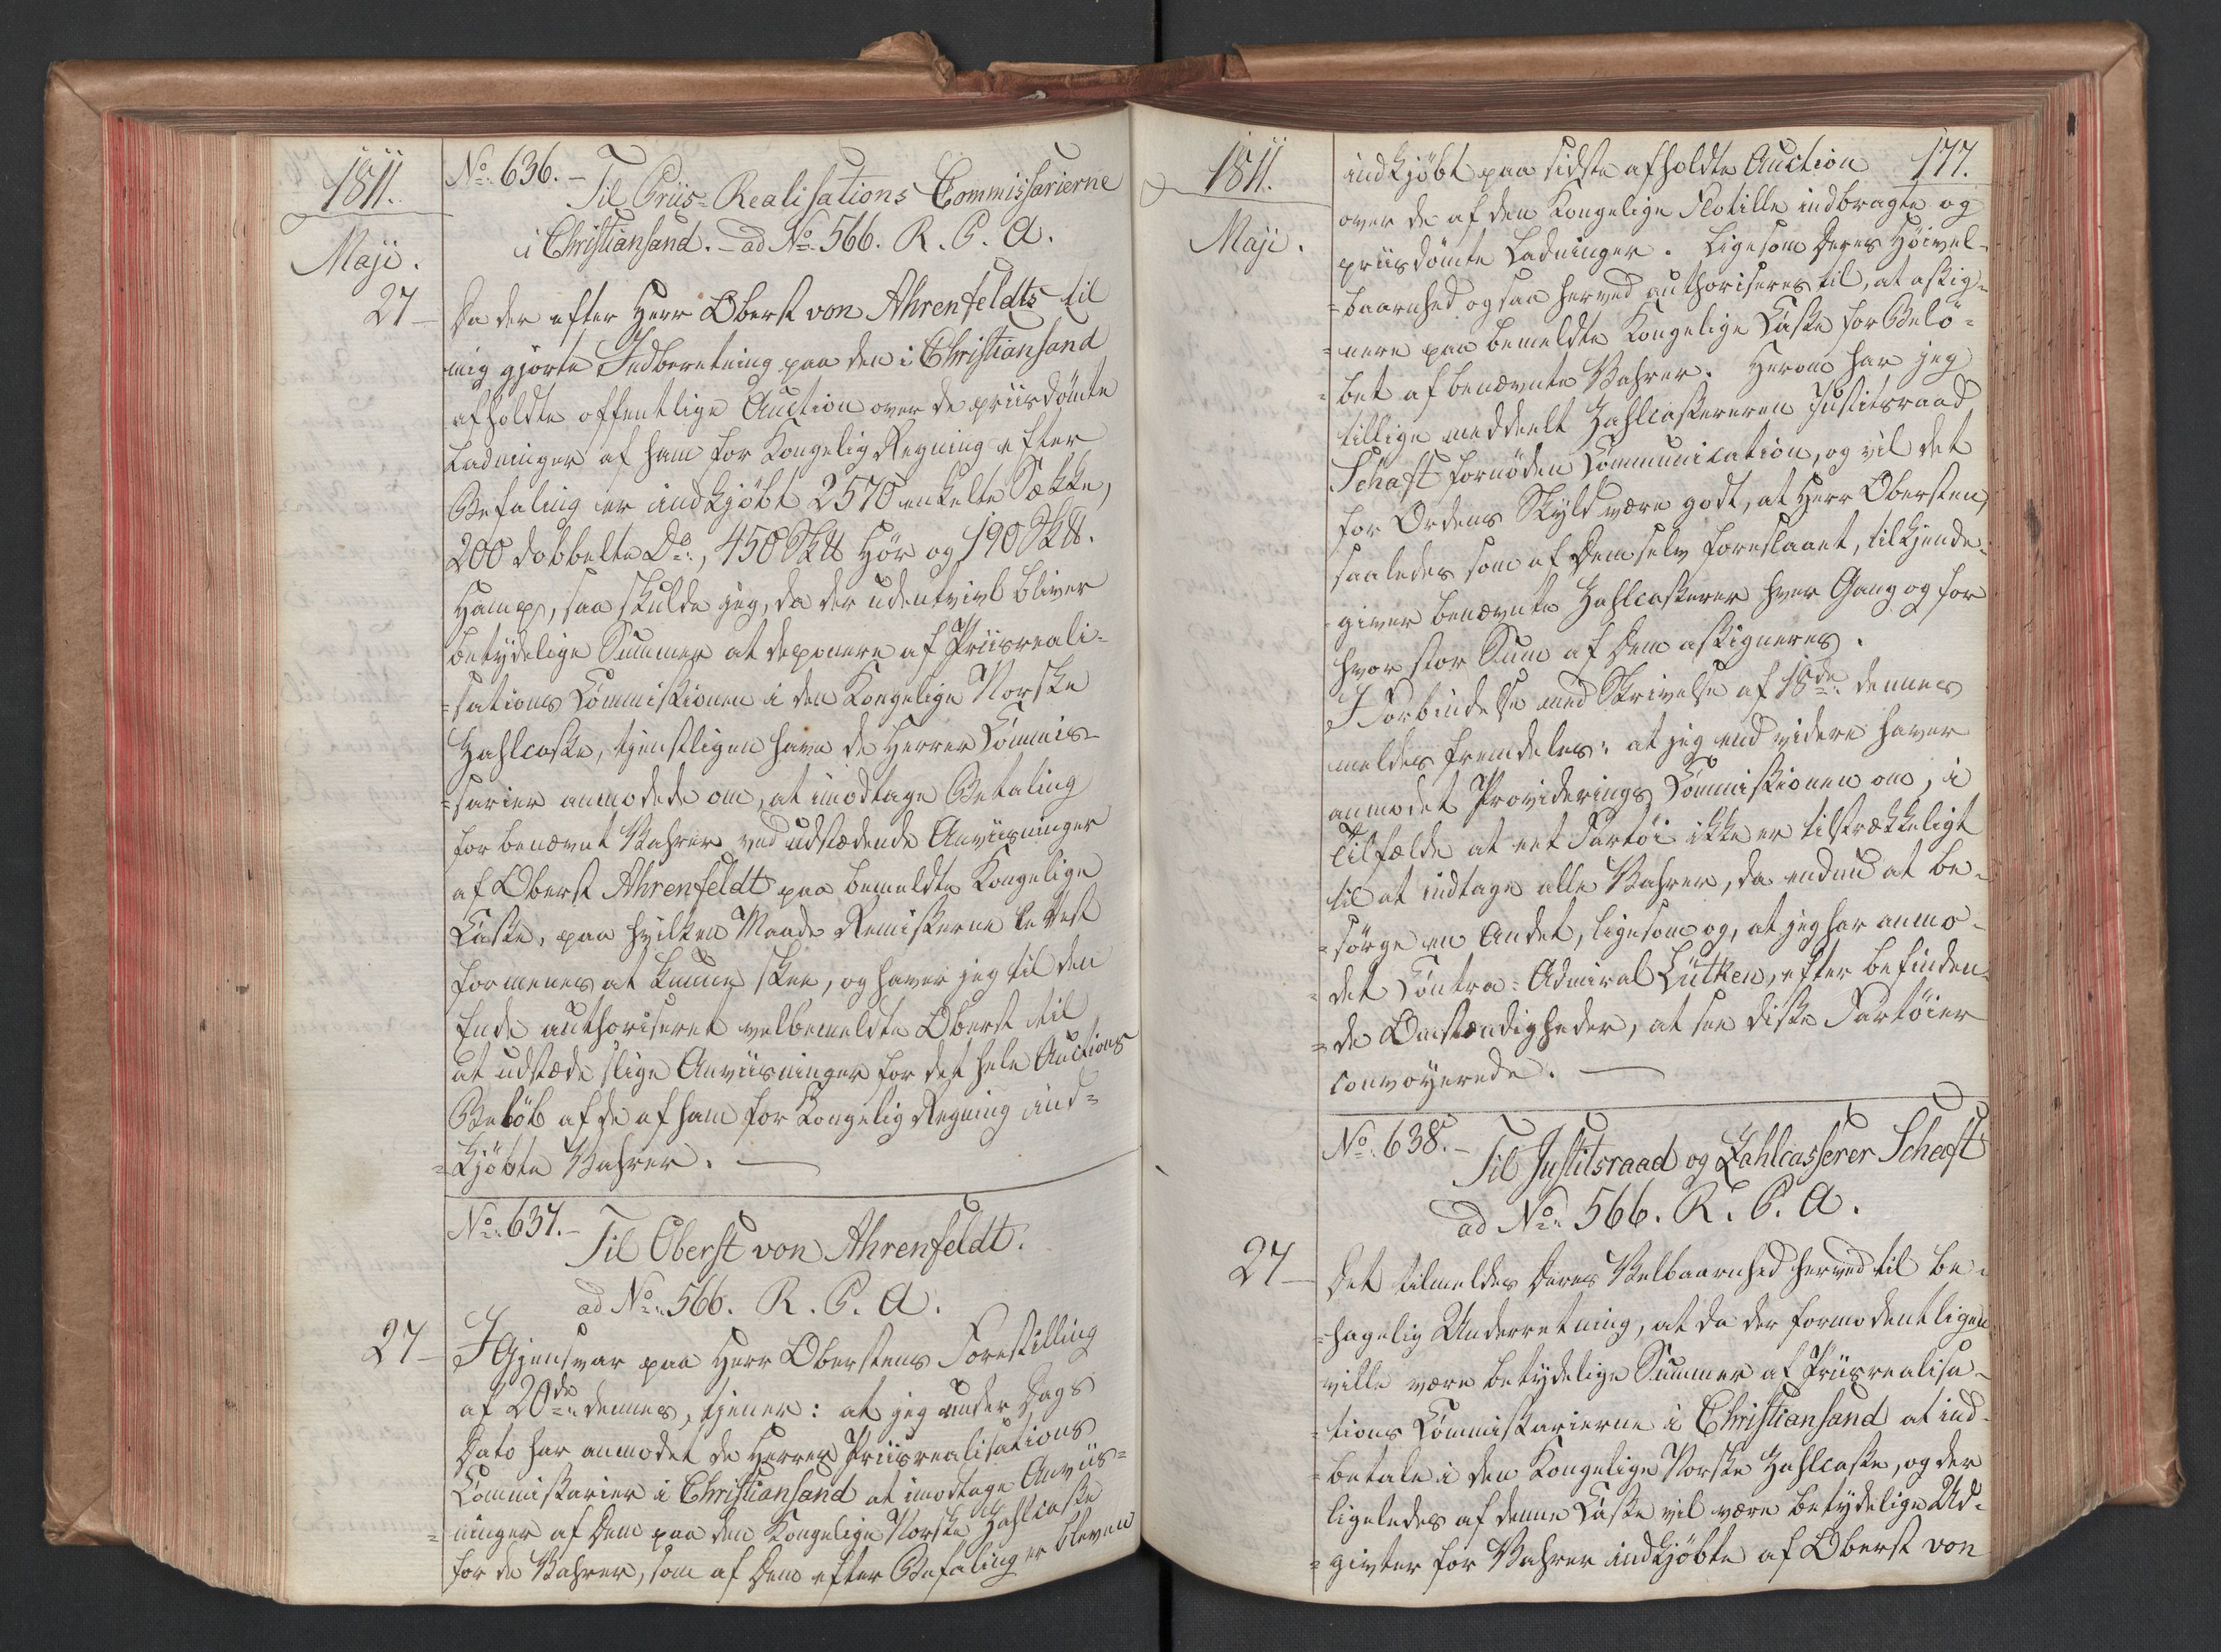 1811.
Maji.
No. 636. –
Til Priis-Realisations Commissarierne
i Christiansand. – ad No. 566. R. P. A.
27 –
Da der efter Herr Oberst von Ahrenfeldts til
mig gjorte Indberetning paa den i Christiansand
afholdte offentlige Auction over de priisdömte
Ladninger af ham for Kongelig Regning efter
Befaling er indkjöbt 2570 enkelte Sække,
200 dobbelte Do., 450 Sk℔ Hör og 190 Sk℔.
Hamp, saa skulde jeg, da der udentvivl bliver
betydelige Summer at deponere af Priisreali-
=sations Commissionen i den Kongelige Norske
Zahlcasse, tjenstligen have de Herrer Commis-
=sarier anmodede om, at imodtage Betaling
for benævnt Vahrer ved udstædende Anviisninger
af Oberst Ahrenfeldt paa bemeldte Kongelige
Casse, paa hvilken Maade Remisserne lettest
formenes at kunne skee, og haver jeg til den
Ende authoriseret velbemeldte Oberst til
at udstæde slige Anviisninger for det hele Auctions
Belöb af de af ham for Kongelig Regning ind=
=kjöbte Vahrer. –
No. 637. –
Til Oberst von Ahrenfeldt.
ad No. 566. R. P. A.
27 –
I Gjensvar paa Herr Oberstens Forestilling
af 20de dennes, tjener: at jeg under Dags
Dato har anmodet de Herrer Priisrealisations
Commissarier i Christiansand at imodtage Anviis=
=ninger af Dem paa den Kongelige Norske Zahlcasse
for de Vahrer, som af Dem efter Befaling er bleven
1811.
Maji.
177.
indkjöbt paa sidste afholdte Auction
over de af den Kongelige Flotille indbragte og
priisdömte Ladninger. Ligesom Deres Höivel-
=baarnhed ogsaa herved authoriseres til, at assig-
=nere paa bemeldte Kongelige Casse for Belö=
=bet af benævnte Vahrer. Herom har jeg
tillige meddeelt Zahlcassereren Justitsraad
Schaft fornöden Communication, og vil det
for Ordens Skyld være godt, at Herr Obersten,
saaledes som af Dem selv foreslaaet, tilkjende-
=giver benævnte Zahlcasserer hver Gang og for
hvor stor Sum af Dem assigneres.
I Forbindelse med Skrivelse af 18de dennes
meldes fremdeles: at jeg end videre haver
anmodet Providerings Commissionen om, i
Tilfælde at eet Fartöi ikke er tilstrækkeligt
til at indtage alle Vahrer, da endnu at be-
=sörge en Andet, ligesom og, at jeg har anmo-
=det Contra-Admiral Lütken, efter befinden-
=de Omstændigheder, at see disse Fartöier
convoyerede. –
No. 638. –
Til Justitsraad og Zahlcasserer Schaft
ad No. 566. R. P. A.
27 –
Det tilmeldes Deres Velbaarnhed herved til be-
=hagelig Underretning, at da der formodentligen
ville være betydelige Summer af Priisrealisa-
=tions Commissarierne i Christiansand at ind-
=betale i den Kongelige Norske Zahlcasse, og der
ligeledes af denne Casse vil være betydelige Ud-
=givter for Vahrer indkjöbte af Oberst von